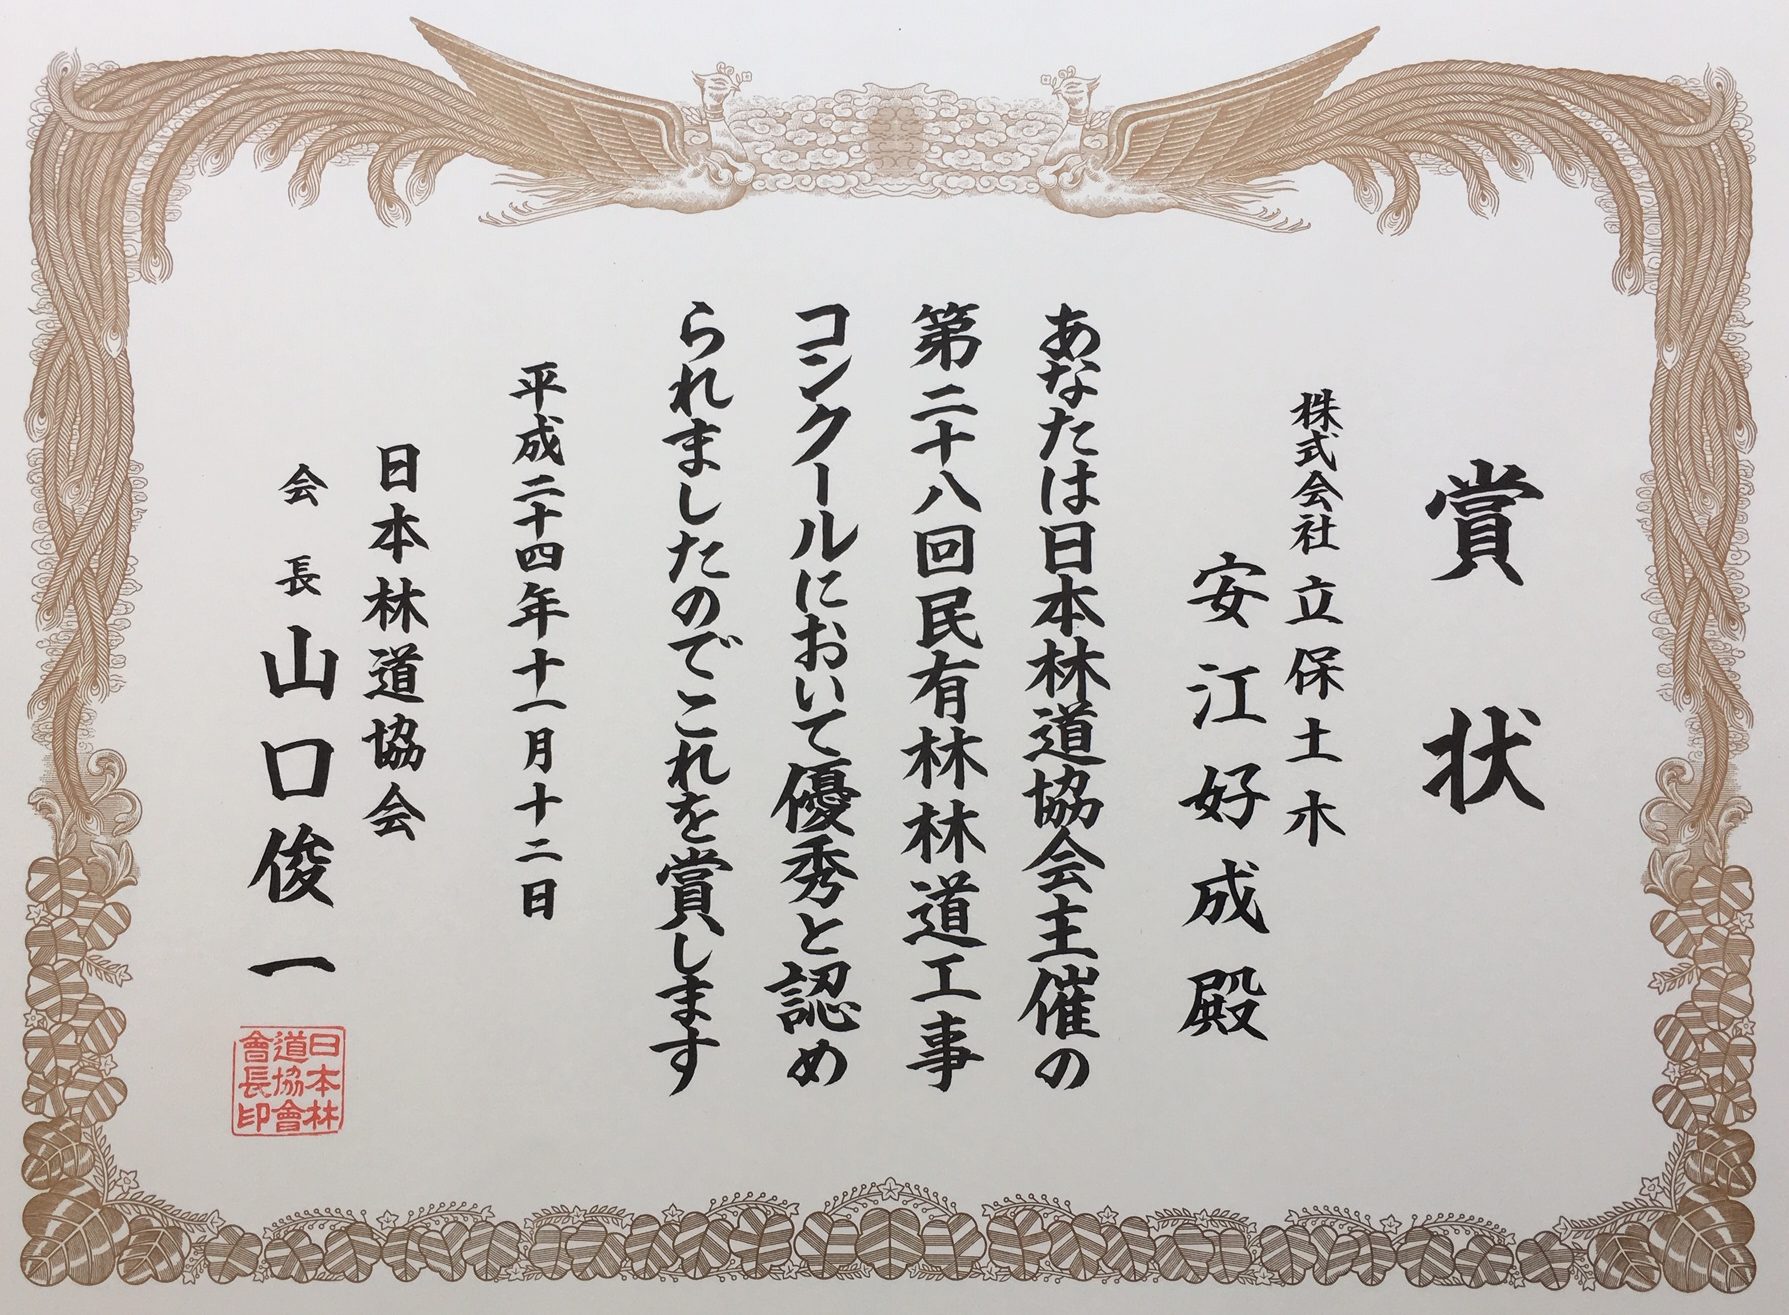 賞状
株式会社立保土木
安江好成殿
あなたは日本林道協会主催の
第二十八回民有林林道工事
コンクールにおいて優秀と認め
られましたのでこれを賞します
平成二十四年十一月十二日
日本林道協会
会長山口俊一
日本林
道協會
會長印